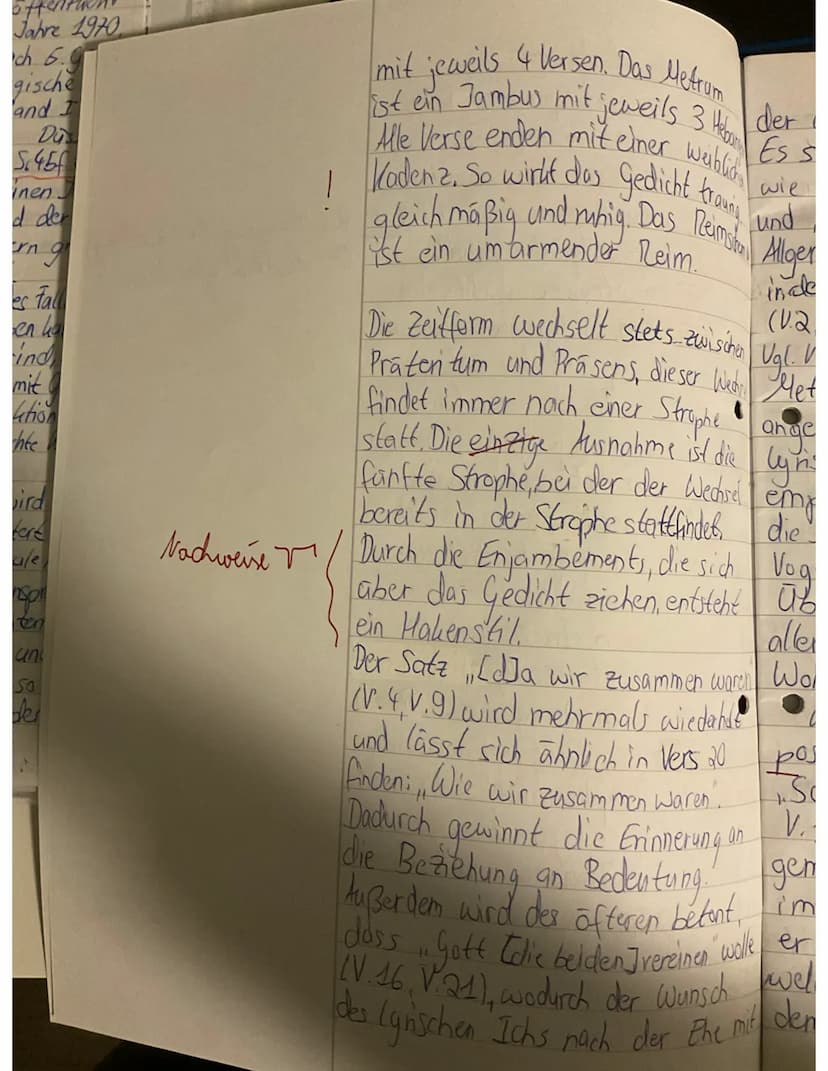 öffentlich
Jahre 1970.
ch 6.g
gische
and I
Das
S.45f
inen
d der
ern g
es Fall
en ha
ind,
mit
ktion
chte
ird
tert
ule,
nspr
ten
und
so
der
mit jeweils 4 Versen. Das Metrum
ist ein Jambus mit jeweils 3 Hebun
Alle Verse enden mit einer weiblich
! Kadenz. So wirkt das Gedicht traurig
gleichmäßig und ruhig. Das Reimschem
ist ein umarmender Reim.
Die Zeitform wechselt stets zwischen
Präteritum und Präsens, dieser Wechs
findet immer nach einer Strophe
statt. Die einzige Ausnahme ist die
fünfte Strophe, bei der der Wechsel
bereits in der Strophe stattfindet.
Nachweise Durch die Enjambements, die sich
über das Gedicht ziehen, entsteht
ein Hakenstil.
Der Satz „[d]a wir zusammen waren
(V.4, V.9) wird mehrmals wiederholt
und lässt sich ähnlich in Vers 20
finden: „Wie wir zusammen waren".
Dadurch gewinnt die Erinnerung an
die Beziehung an Bedeutung.
Außerdem wird des öfteren betont,
dass „Gott [die beiden] vereinen" wolle
(V.16, V.21), wodurch der Wunsch
des lyrischen Ichs nach der Ehe mit
der
Es s
wie
und
Allger
inde
(V.2
Vgl. V
Met
ange
lyri
emp
die
Vog
Üb
aller
Wo
pos
„So
V.
gem
im
er
wel
den